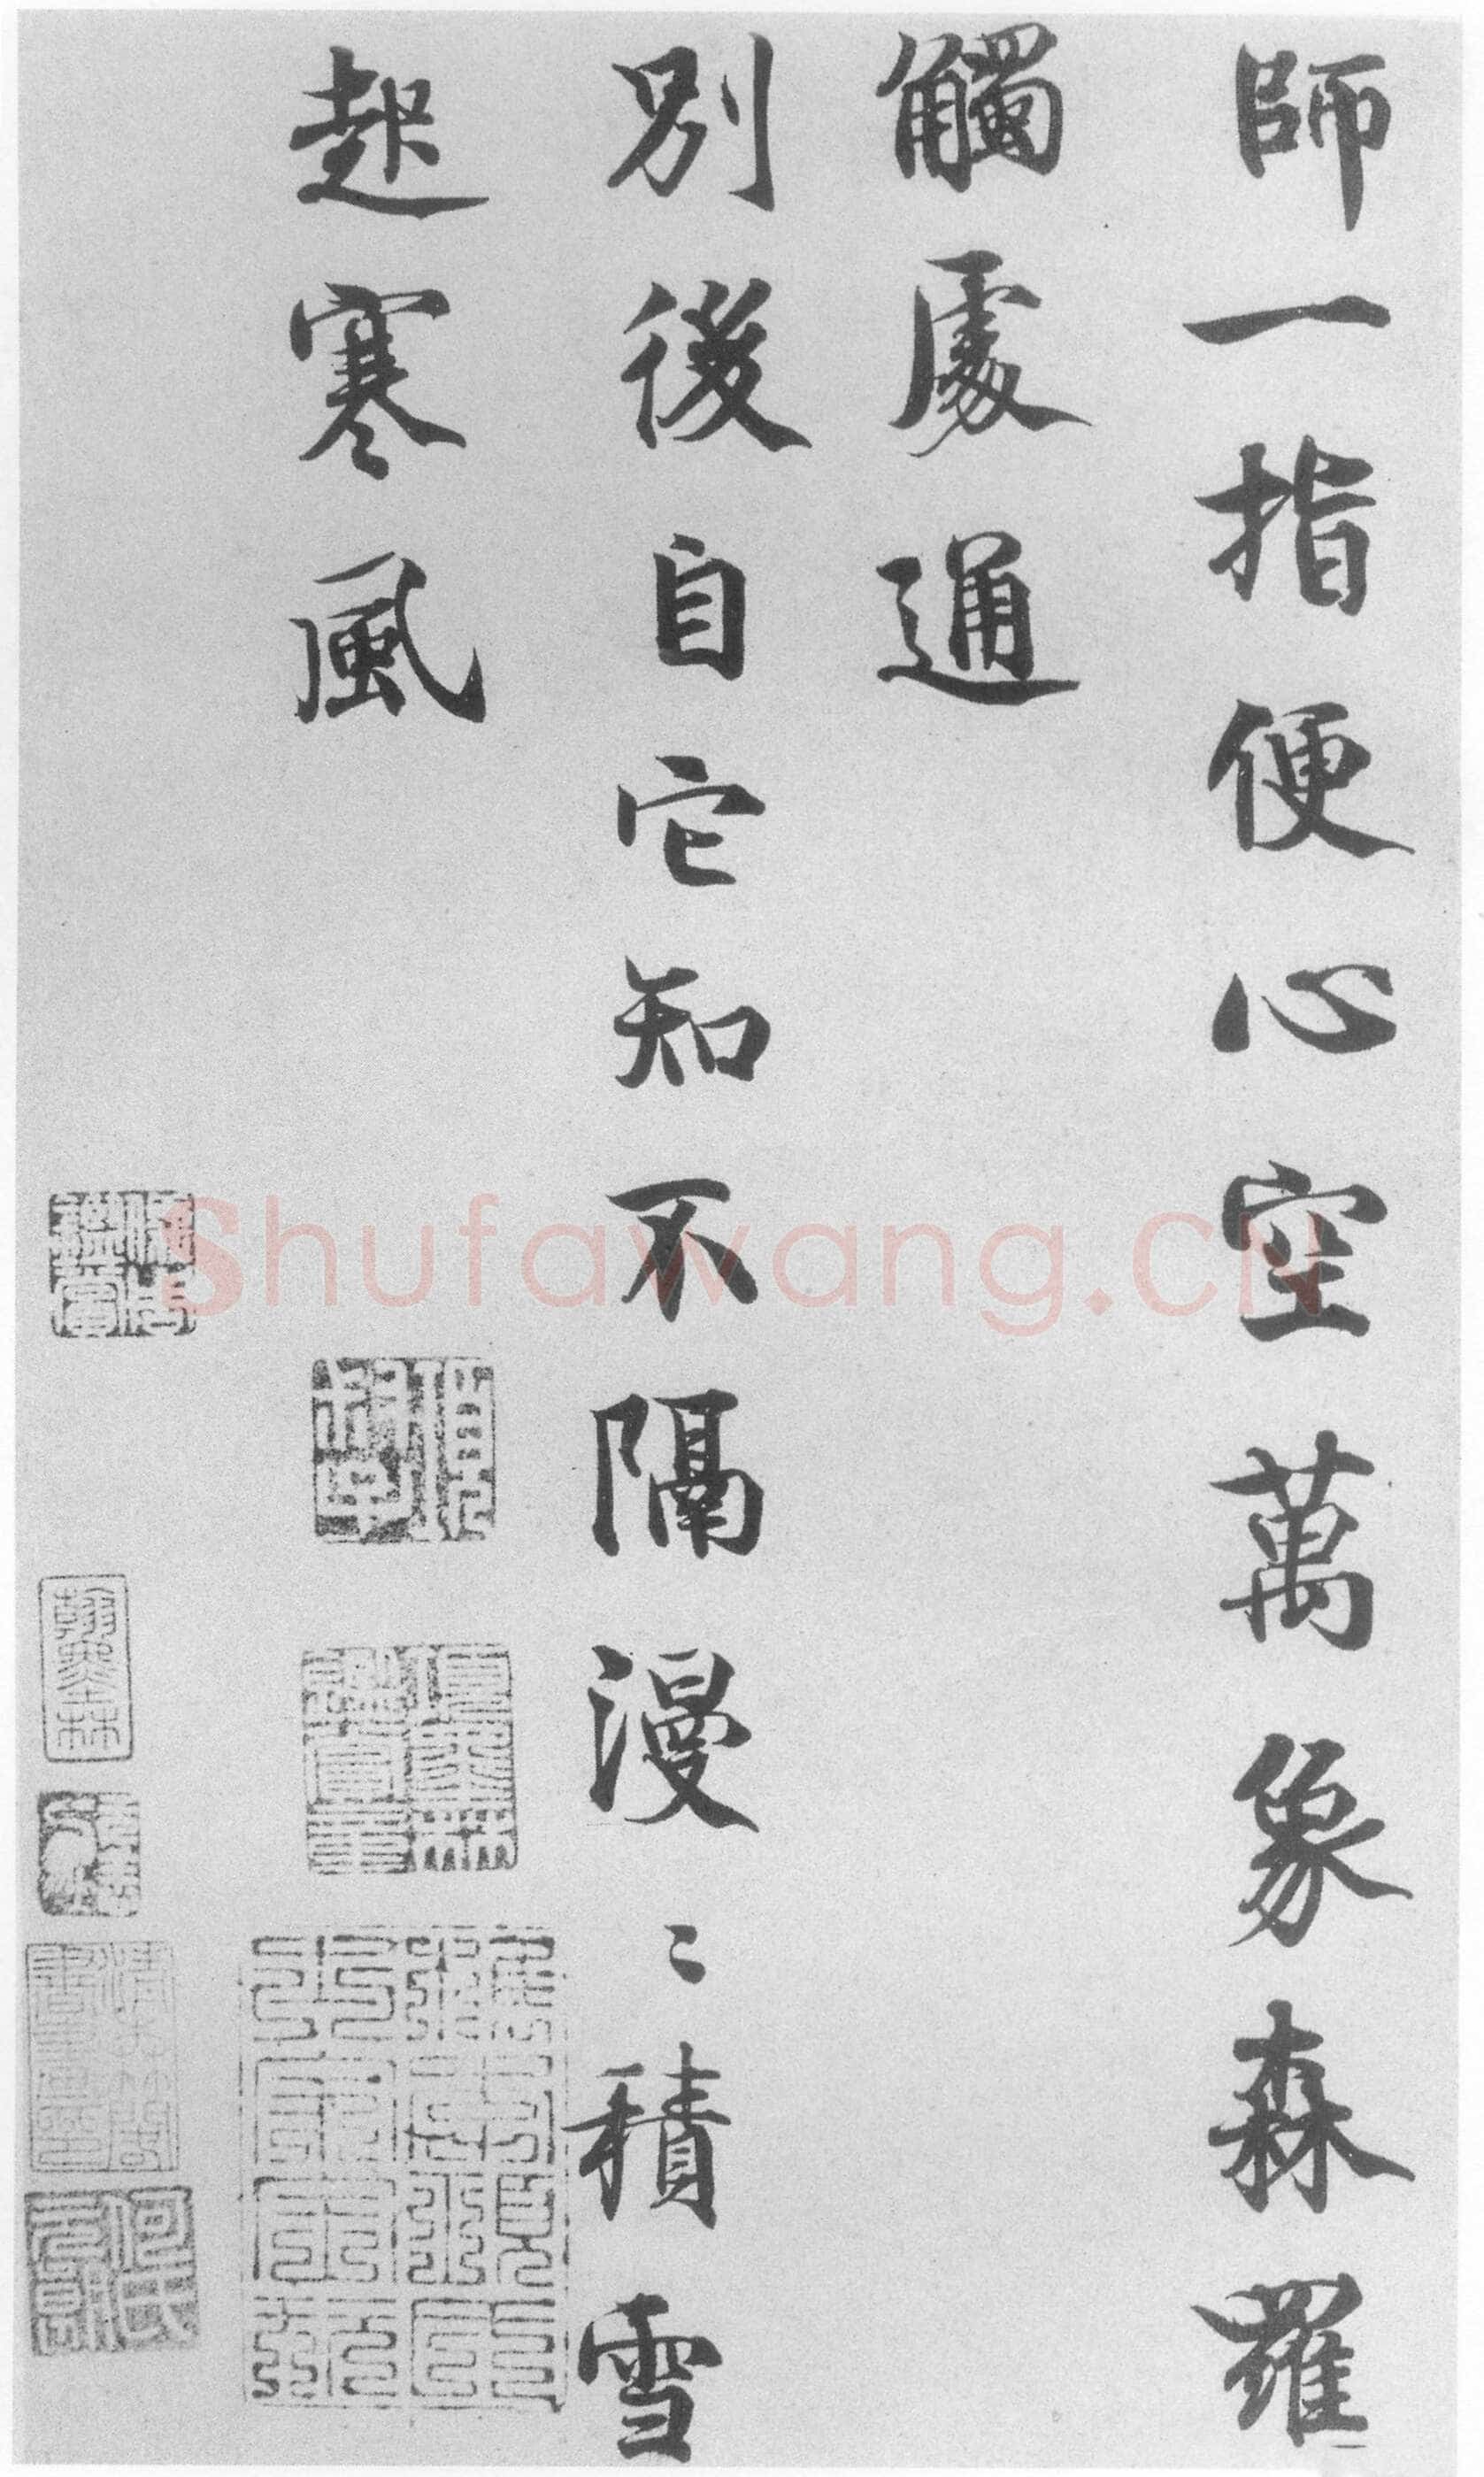 師一指便心空萬象森羅
觸處通
別後自它知不隔漫〻積雪
起寒風
Shufawang.CN
翰墨林